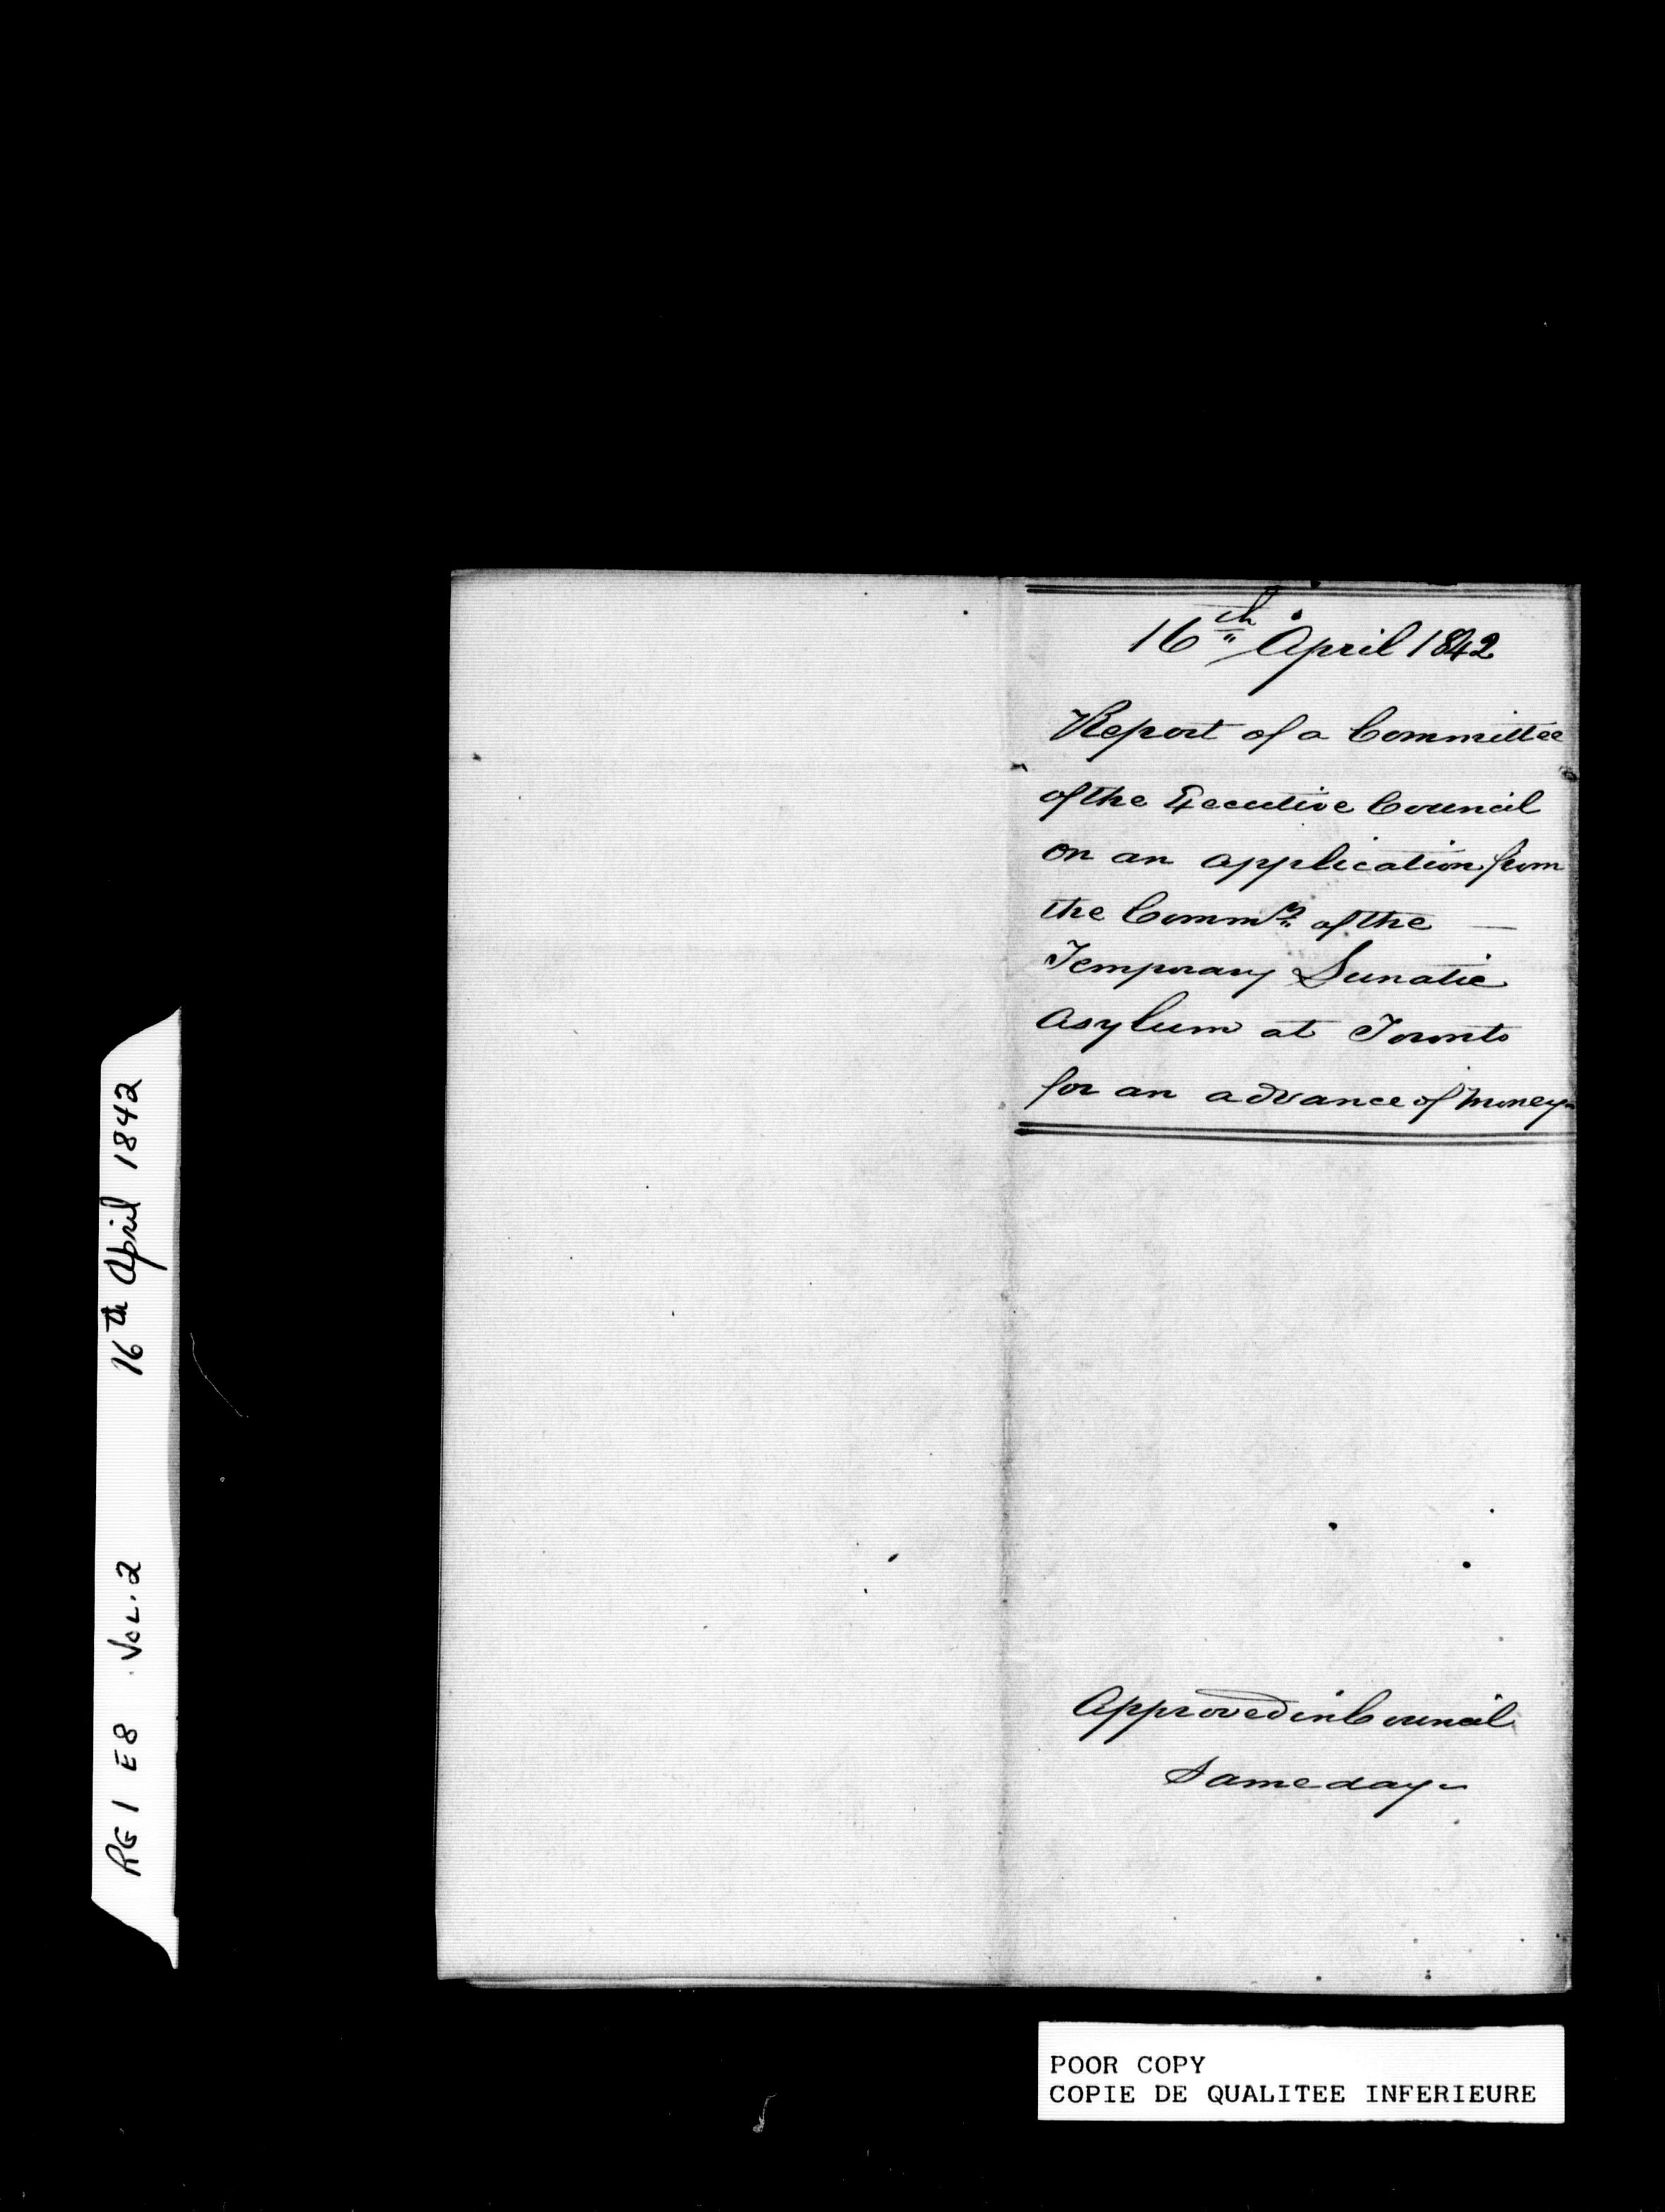 16th April 1842
Report of a Committee
of the Executive Council
on an application from
the Commrs of the —
Temporary Lunatic
Asylum at Toronto
for an advance of Money-
Approved in Council
Same day-
RG 1 E8 VOL. 2 16th April 1842
POOR COPY
COPIE DE QUALITEE INFERIEURE